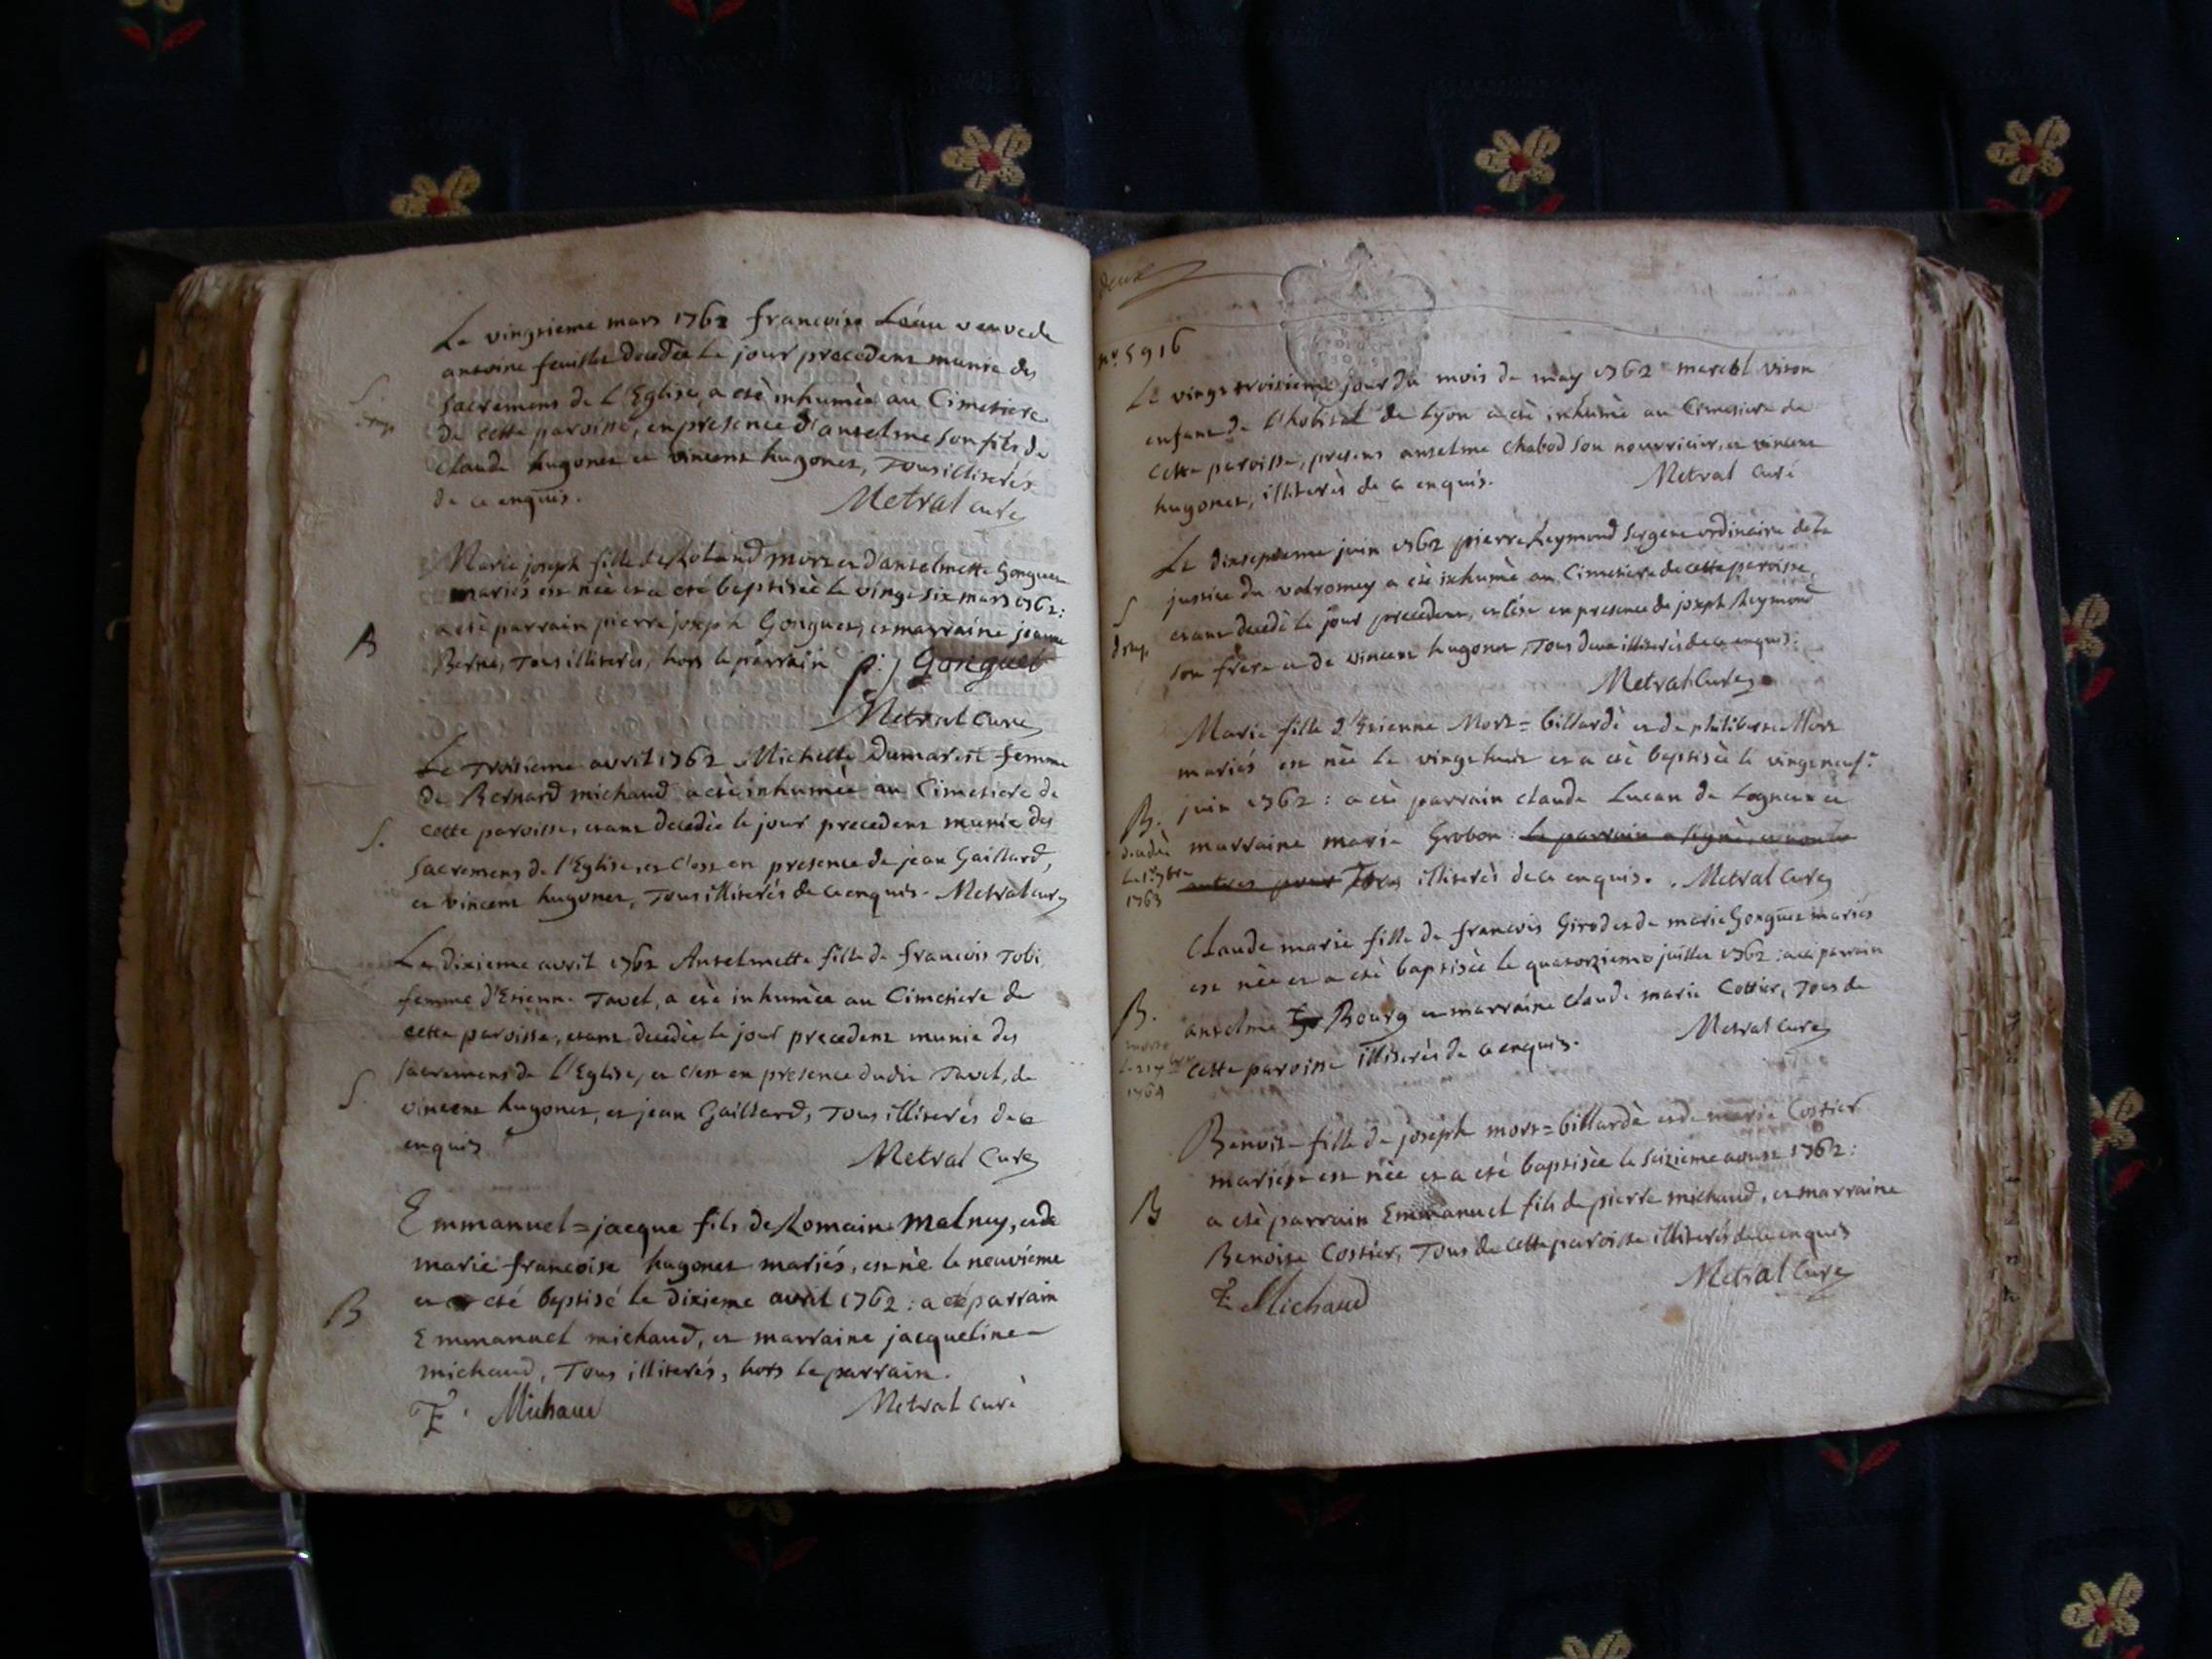 Le vingtieme mars 1762 francoise Léau veuve de
antoine feuillet decedée le jour precedent munie des
sacremens de l'Eglise, a eté inhumée au Cimetiere
de cette paroisse, en presence d'anselme son fils de
claude hugonet et vincent hugonet, Tous illiterés
de ce enquis.
Metral curé
Marie joseph fille de Roland mort et d'anselmette Gonguet
mariés est née et a eté baptisée le vingt six mars 1762:
a eté parrain pierre joseph Gonguet, et marraine jeanne
Berne, Tous illiterés, hors le parrain p: j Gonguet
B
Metral Curé
Le Troisieme avril 1762 Michelle Dumarest femme
de Bernard michaud a eté inhumée au Cimetiere de
cette paroisse, etant decedée le jour precedent munie des
S.
sacremens de l'Eglise, et c'est en presence de jean Gaillard,
et vincent hugonet, Tous illiterés de ce enquis. Metral curé
Le dixieme avril 1762 Anselmette fille de francois Tobi
femme d'Etienne Tavel, a eté inhumée au Cimetiere de
cette paroisse, etant decedée le jour precedent munie des
sacremens de l'Eglise, et c'est en presence dudit Tavel, de
S.
vincent hugonet, et jean Gaillard, Tous illiterés de ce
enquis
Metral Curé
Emmanuel=jacque fils de Romain Melney, et de
marie francoise hugonet mariés, est né le neuvieme
et a eté baptisé le dixieme avril 1762: a eté parrain
B
Emmanuel michaud, et marraine jacqueline
michaud, Tous illiterés, hors le parrain.
E. Michaud Metral Curé
deux
no. 5916
Le vingt troisieme jour du mois de may 1762 marcel vison
enfant de l'hopital de Lyon a eté inhumé au Cimetiere de
cette paroisse, presens anselme chabod son nourricier, et vincent
hugonet, illiterés de ce enquis. Metral Curé
Le dixseptieme juin 1762 pierre Reymond sergent ordinaire de la
justice du valromey a eté inhumé au Cimetiere de cette paroisse,
S
etant decedé le jour precedent, et c'est en presence de joseph Reymond
son frere et de vincent hugonet, Tous deux illiterés de ce enquis.
Metral Curé
Marie fille d'Etienne Mort=billardé et de philiberte Mort
mariés est née le vingt huit et a eté baptisée le vingt neuf
juin 1762: a eté parrain claude Lucan de Logneux et
B.
marraine marie Grobon: le parrain a signé, et non les
decedée
autres pour Tous illiterés de ce enquis. Metral Curé
1763
Claude marie fille de francois Girod et de marie Gonguet mariés
est née et a eté baptisée le quatorzieme juillet 1762: a eté parrain
B.
anselme Bourg et marraine claude marie Cottier, Tous de
morte
cette paroisse illiterés de ce enquis. Metral Curé
1764
Benoite fille de joseph mort=billardé et de marie Costier
mariés est née et a eté baptisée le seizieme aoust 1762:
B
a eté parrain Emmanuel fils de pierre michaud, et marraine
Benoite Costier, Tous de cette paroisse illiterés de ce enquis
E. Michaud Metral Curé